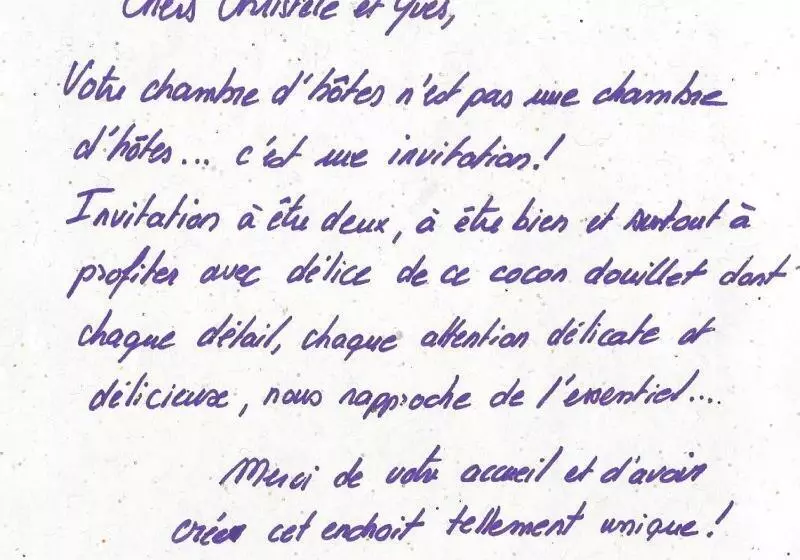 Chers Christèle et Yves,
Votre chambre d'hôtes n'est pas une chambre
d'hôtes... c'est une invitation!
Invitation à être deux, à être bien et surtout à
profiter avec délice de ce cocon douillet dont
chaque détail, chaque attention délicate et
délicieuse, nous rapproche de l'essentiel....
Merci de votre accueil et d'avoir
créer cet endroit tellement unique!